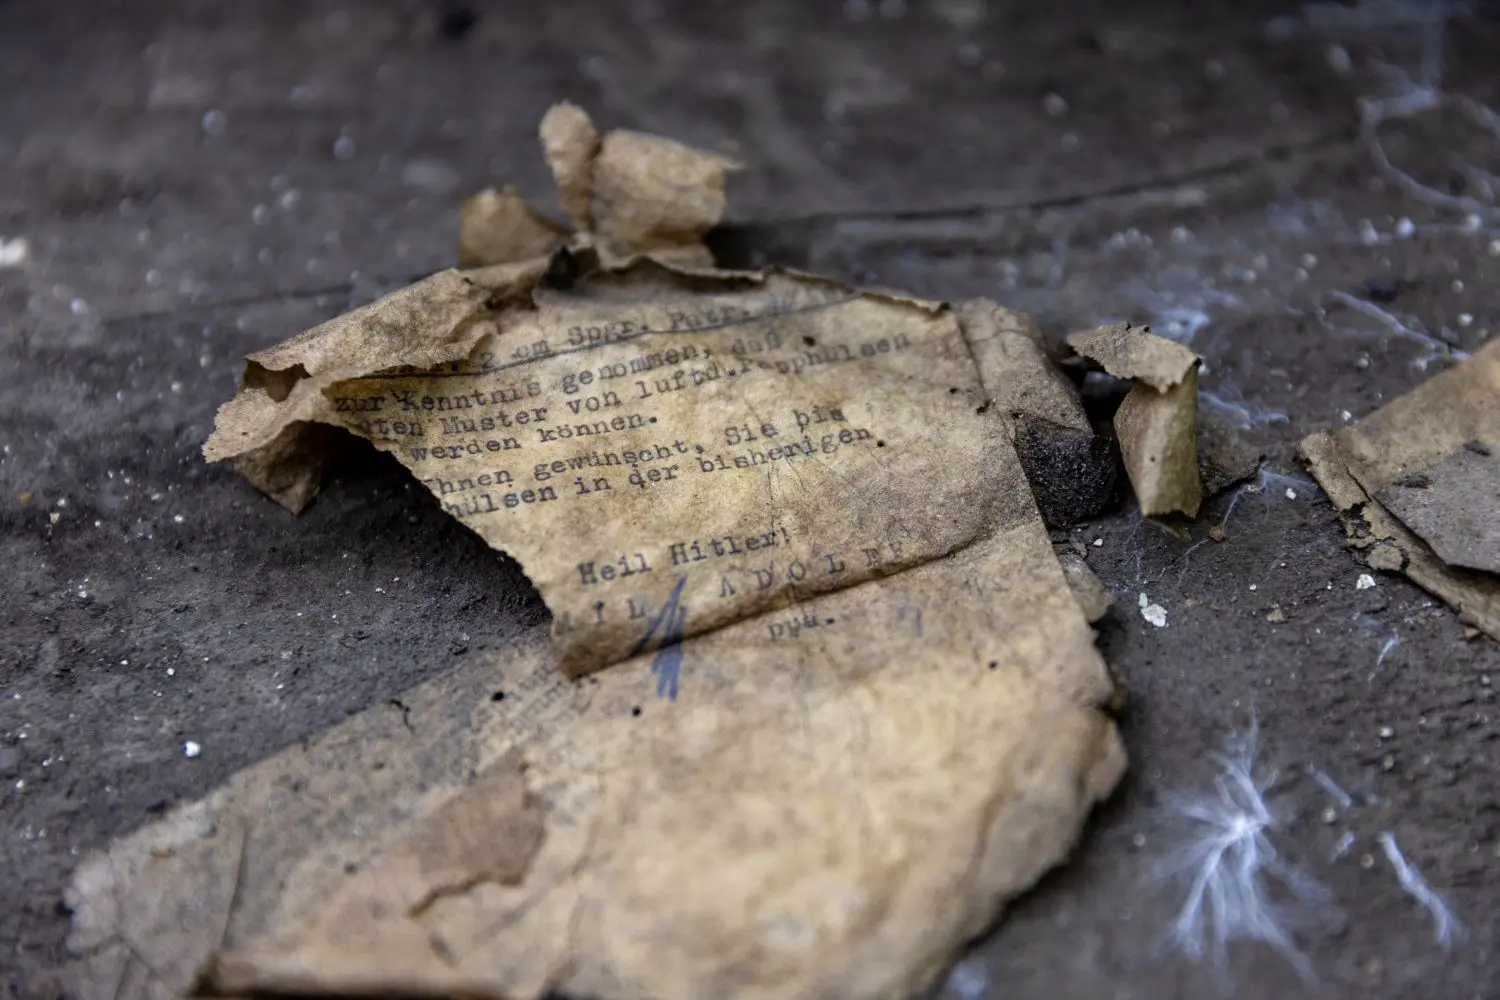 2 cm Spgr. Patr.
zur Kenntnis genommen, daß
ten Muster von luftd. Papphülsen
werden können.
hnen gewünscht, Sie bis
hülsen in der bisherigen
Heil Hitler!
ADOLF
ppa.